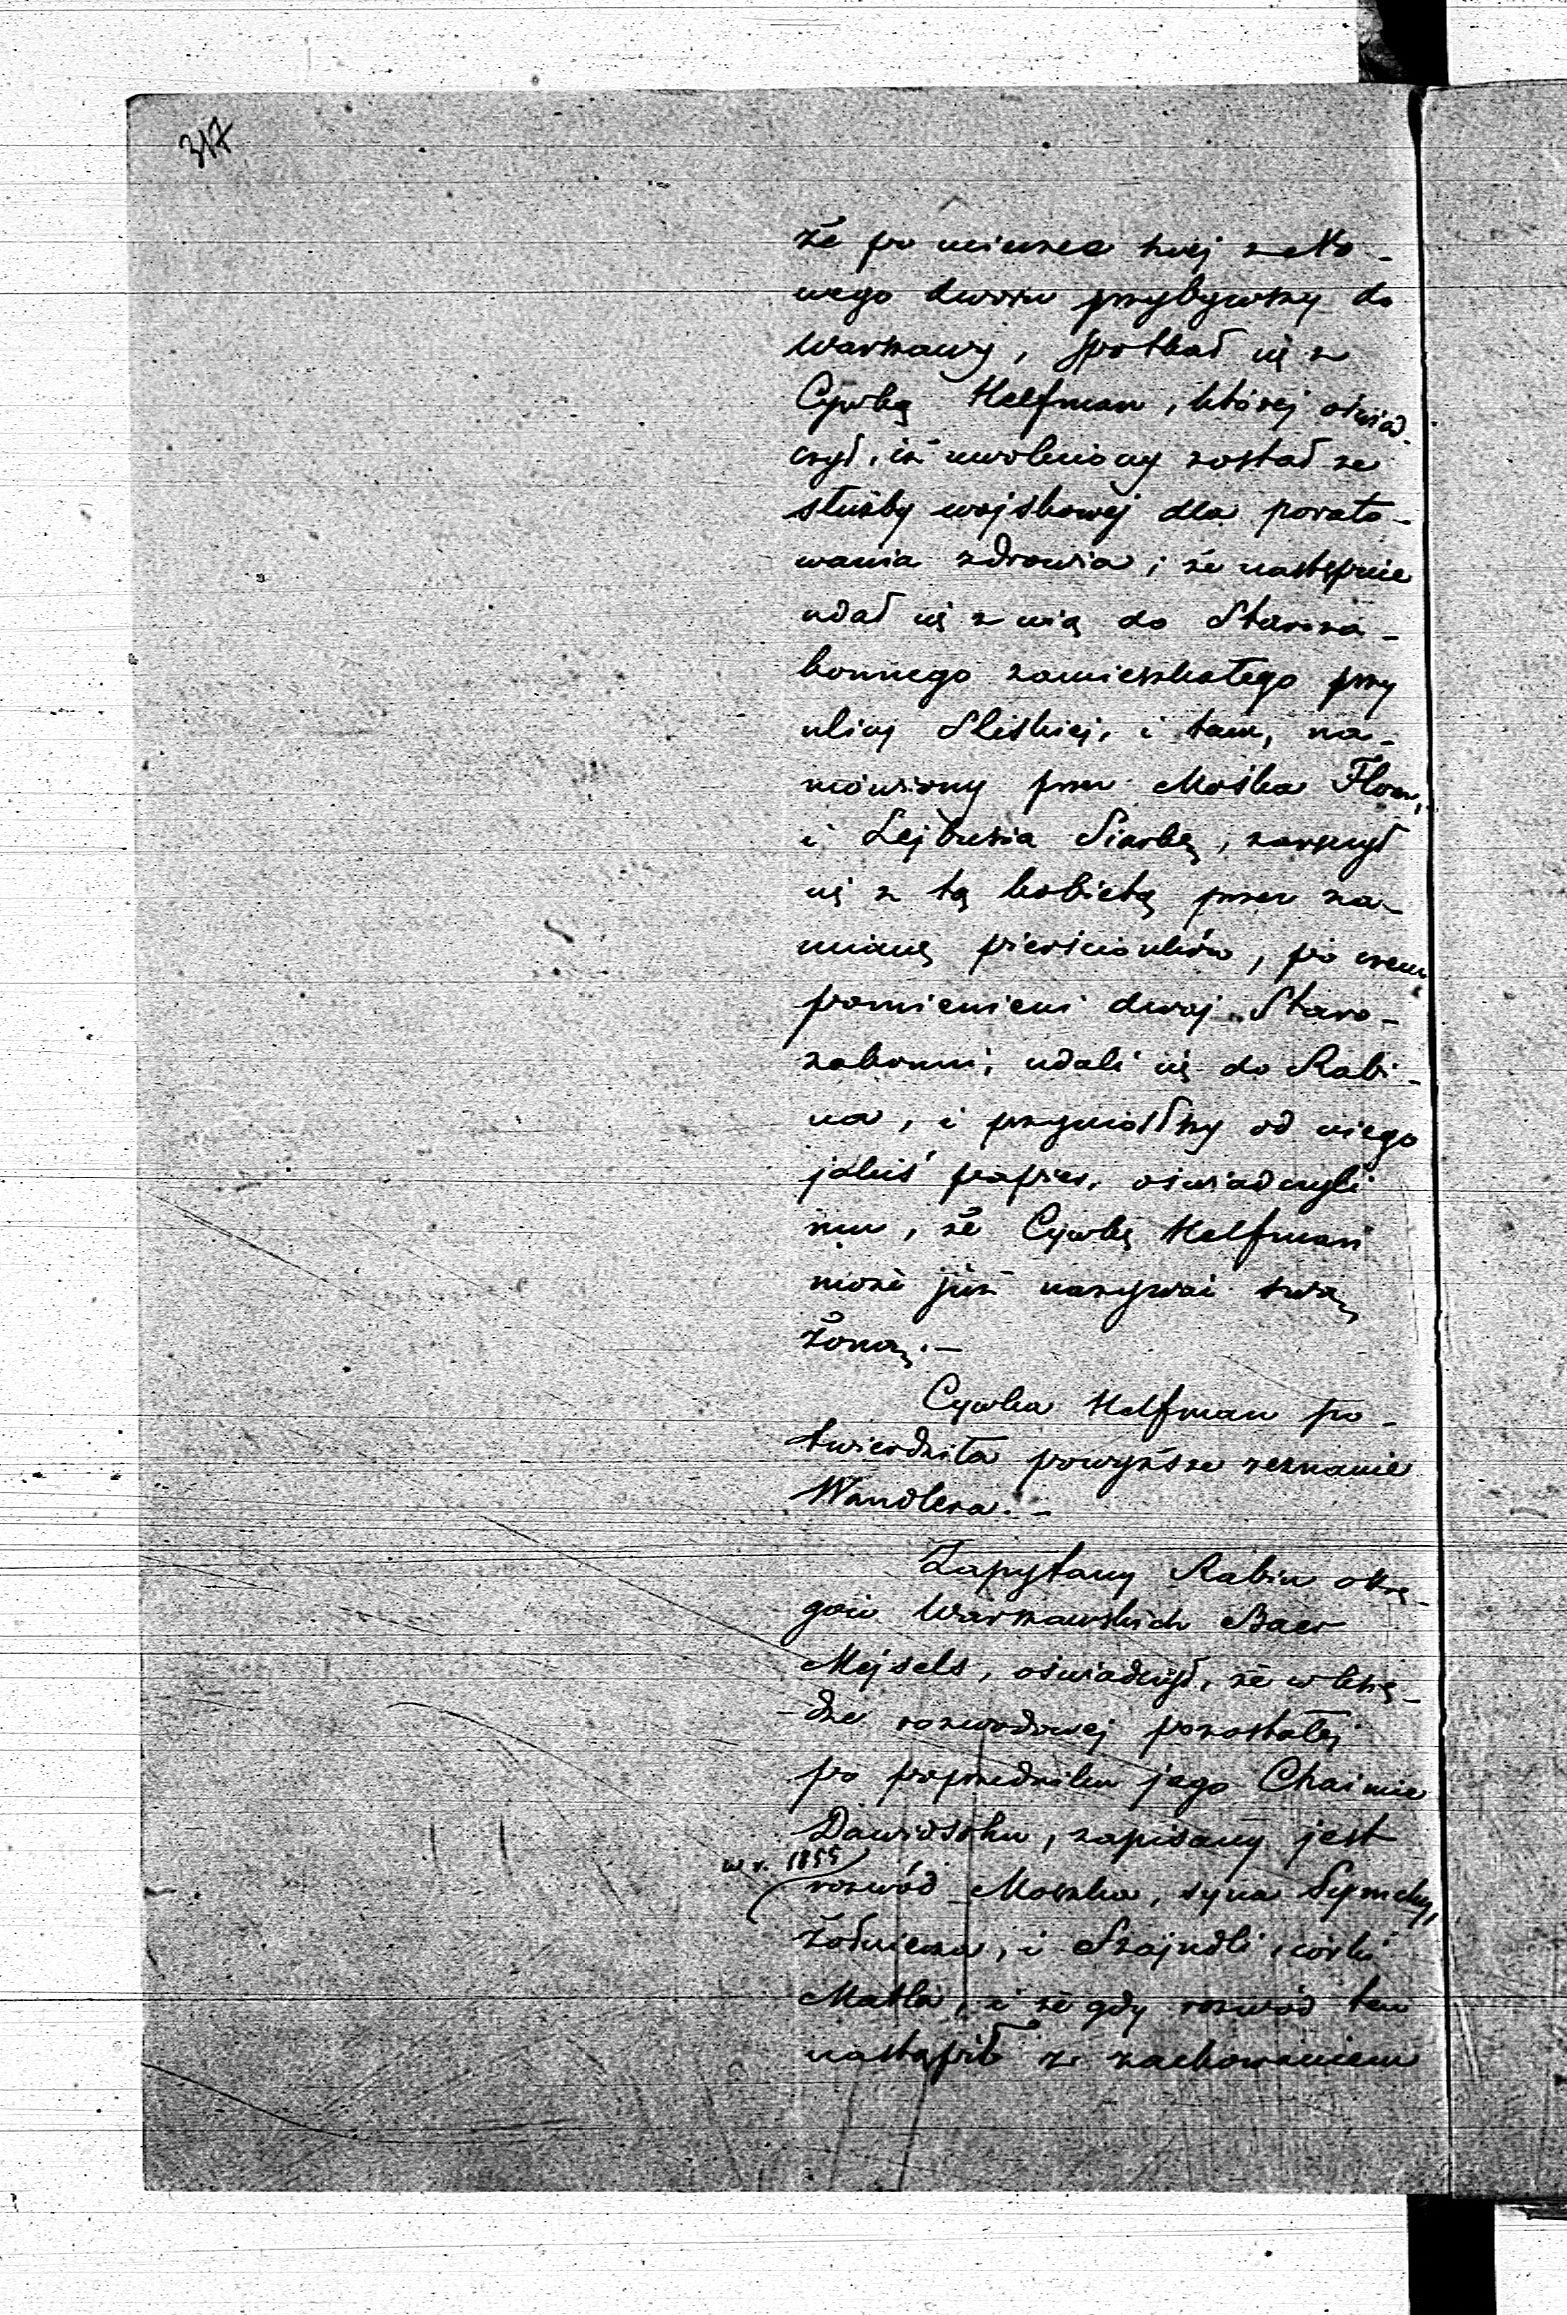 317
że po ucieczce swej z No-
wego dworu przybywszy do
Warszawy, spotkał się z
Cywką Helfman, której oświad-
czył, iż uwolniony został ze
służby wojskowej dla porato-
wania zdrowia; że następnie
udał się z nią do Staroza-
konnego zamieszkałego przy
ulicy Śliskiej, i tam, na-
mówiony przez Mośka
i Lejbusia, zaręczył
się z tą kobietą przez za-
mianę pierścionków, po czem
pomienieni dwaj Staro-
zakonni, udali się do Rabi-
na, i przyniósłszy od niego
jakiś papier, oświadczyli
mu, że Cywkę Helfman
może już nazywać swą
żoną.—
Cywka Helfman po-
twierdziła powyższe zeznanie
Wandlera.—
Zapytany Rabin okrę-
gów Warszawskich Baer
Mejsels, oświadczył, że w księ-
dze rozwodowej pozostałej
po poprzedniku jego Chaimie
Dawidsohn, zapisany jest
w r. 1855
rozwód Moszka, syna Symchy,
żołnierza, i Szajndli, córki
Matla, i że gdy rozwód ten
nastąpił z zachowaniem